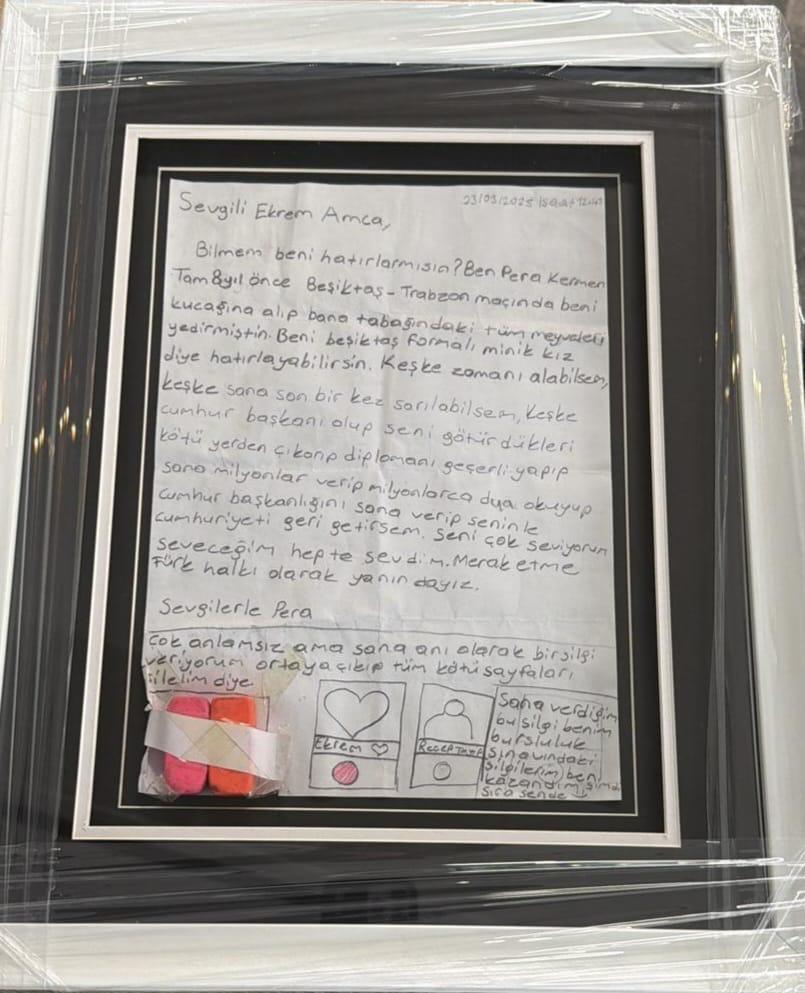 23/03/2025 saat 12.47
Sevgili Ekrem Amca,
Bilmem beni hatırlarmısın? Ben Pera Kermen
Tam 8yıl önce Beşiktaş-Trabzon maçında beni
kucağına alıp bana tabağındaki tüm meyveleri
yedirmiştin. Beni beşiktaş formalı minik kız
diye hatırlayabilirsin. Keşke zamanı alabilsem,
keşke sana son bir kez sarılabilsem, keşke
cumhur başkanı olup seni götürdükleri
kötü yerden çıkarıp diplomanı geçerli yapıp
sana milyonlar verip milyonlarca dua okuyup
cumhur başkanlığını sana verip seninle
cumhuriyeti geri getirsem. Seni çok seviyorum
seveceğim hep te sevdim. Merak etme
Türk halkı olarak yanındayız.
Sevgilerle Pera
Çok anlamsız ama sana anı olarak bir silgi
veriyorum ortaya çıkıp tüm kötü sayfaları
silelim diye
Ekrem
Recep
Sana verdiğim
bu silgi benim
bursluluk
sınavındaki
silgilerim ben
kazandım şimdi
sıra sende